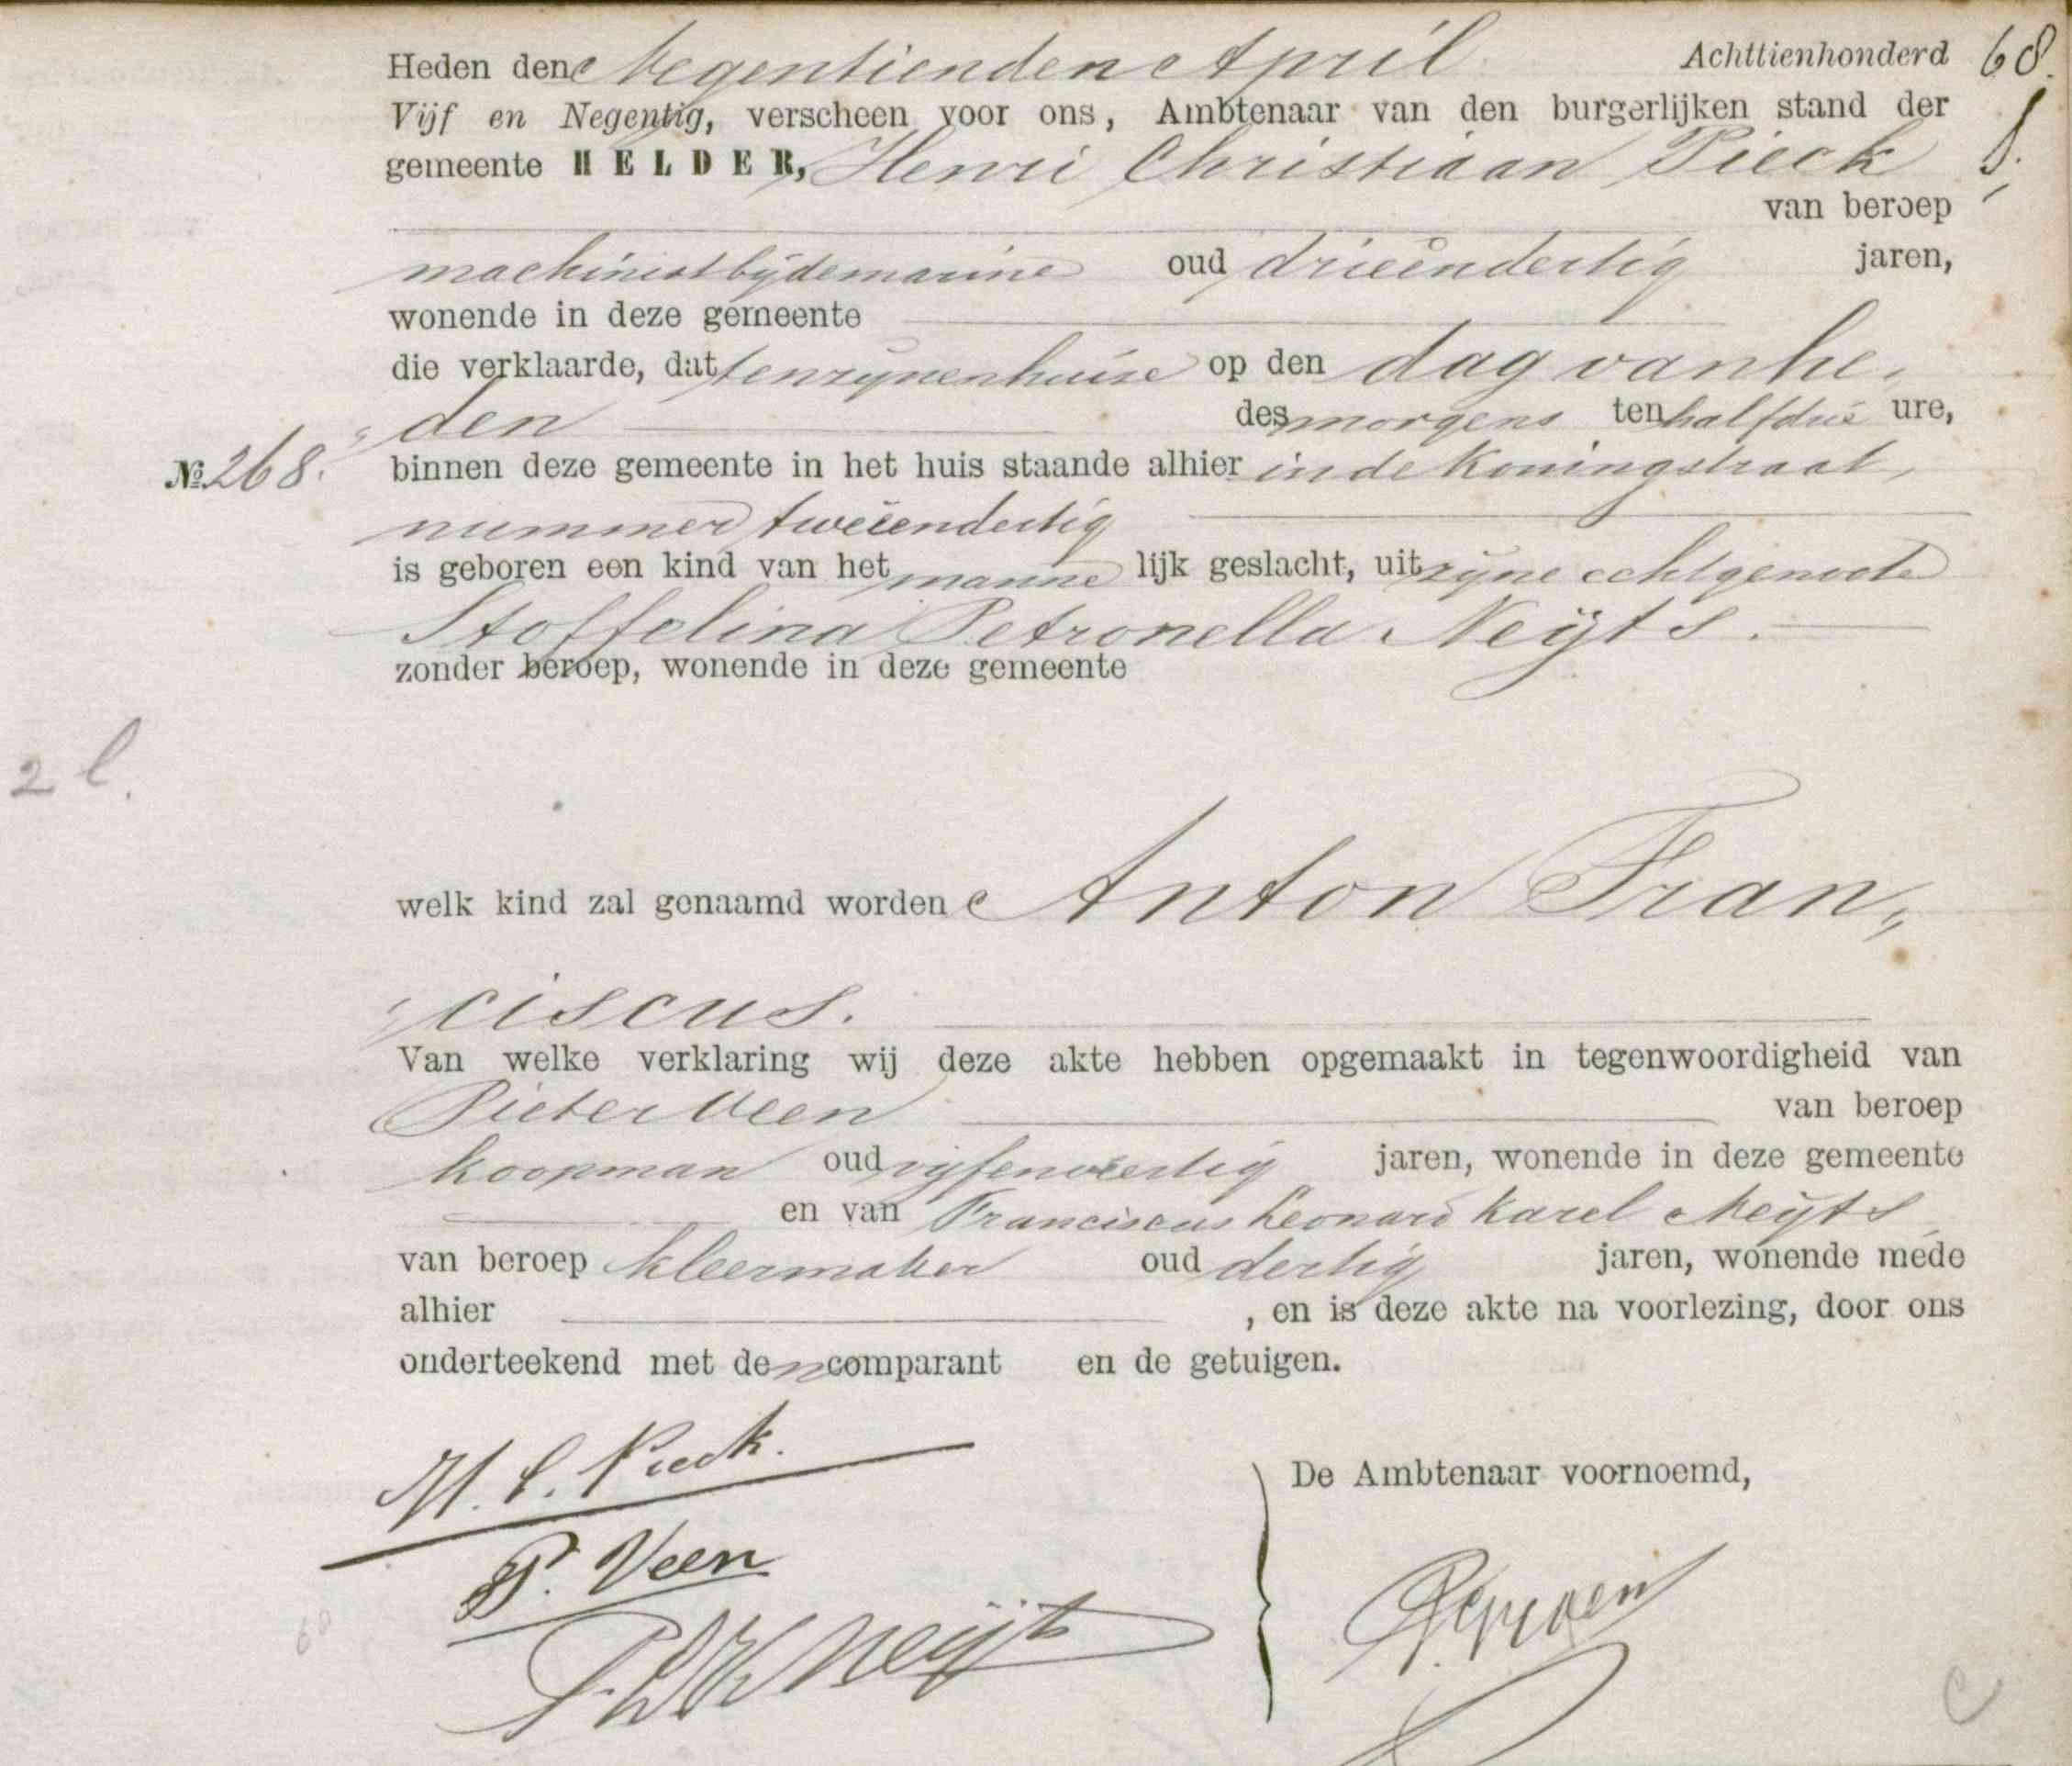 Heden den Negentienden April Achttienhonderd 68.
Vijf en Negentig, verscheen voor ons, Ambtenaar van den burgerlijken stand der
gemeente HELDER, Henri Christiaan Pieck
van beroep
machinist bij de marine oud drieëndertig jaren,
wonende in deze gemeente
die verklaarde, dat ten zijnen huise op den dag van he„
„den des morgens ten half drie ure,
No. 268. binnen deze gemeente in het huis staande alhier in de Koningstraat,
nummer tweeëndertig
is geboren een kind van het manne lijk geslacht, uit zijne echtgenoote
Stoffelina Petronella Neijts.
zonder beroep, wonende in deze gemeente
2 l.
welk kind zal genaamd worden Anton Fran„
„ciscus.
Van welke verklaring wij deze akte hebben opgemaakt in tegenwoordigheid van
Pieter Veen van beroep
koopman oud vijfenveertig jaren, wonende in deze gemeente
en van Franciscus Leonard Karel Neijts
van beroep kleermaker oud dertig jaren, wonende mede
alhier , en is deze akte na voorlezing, door ons
onderteekend met den comparant en de getuigen.
H. C. Pieck.
De Ambtenaar voornoemd,
P. Veen
F L K Neijts
68